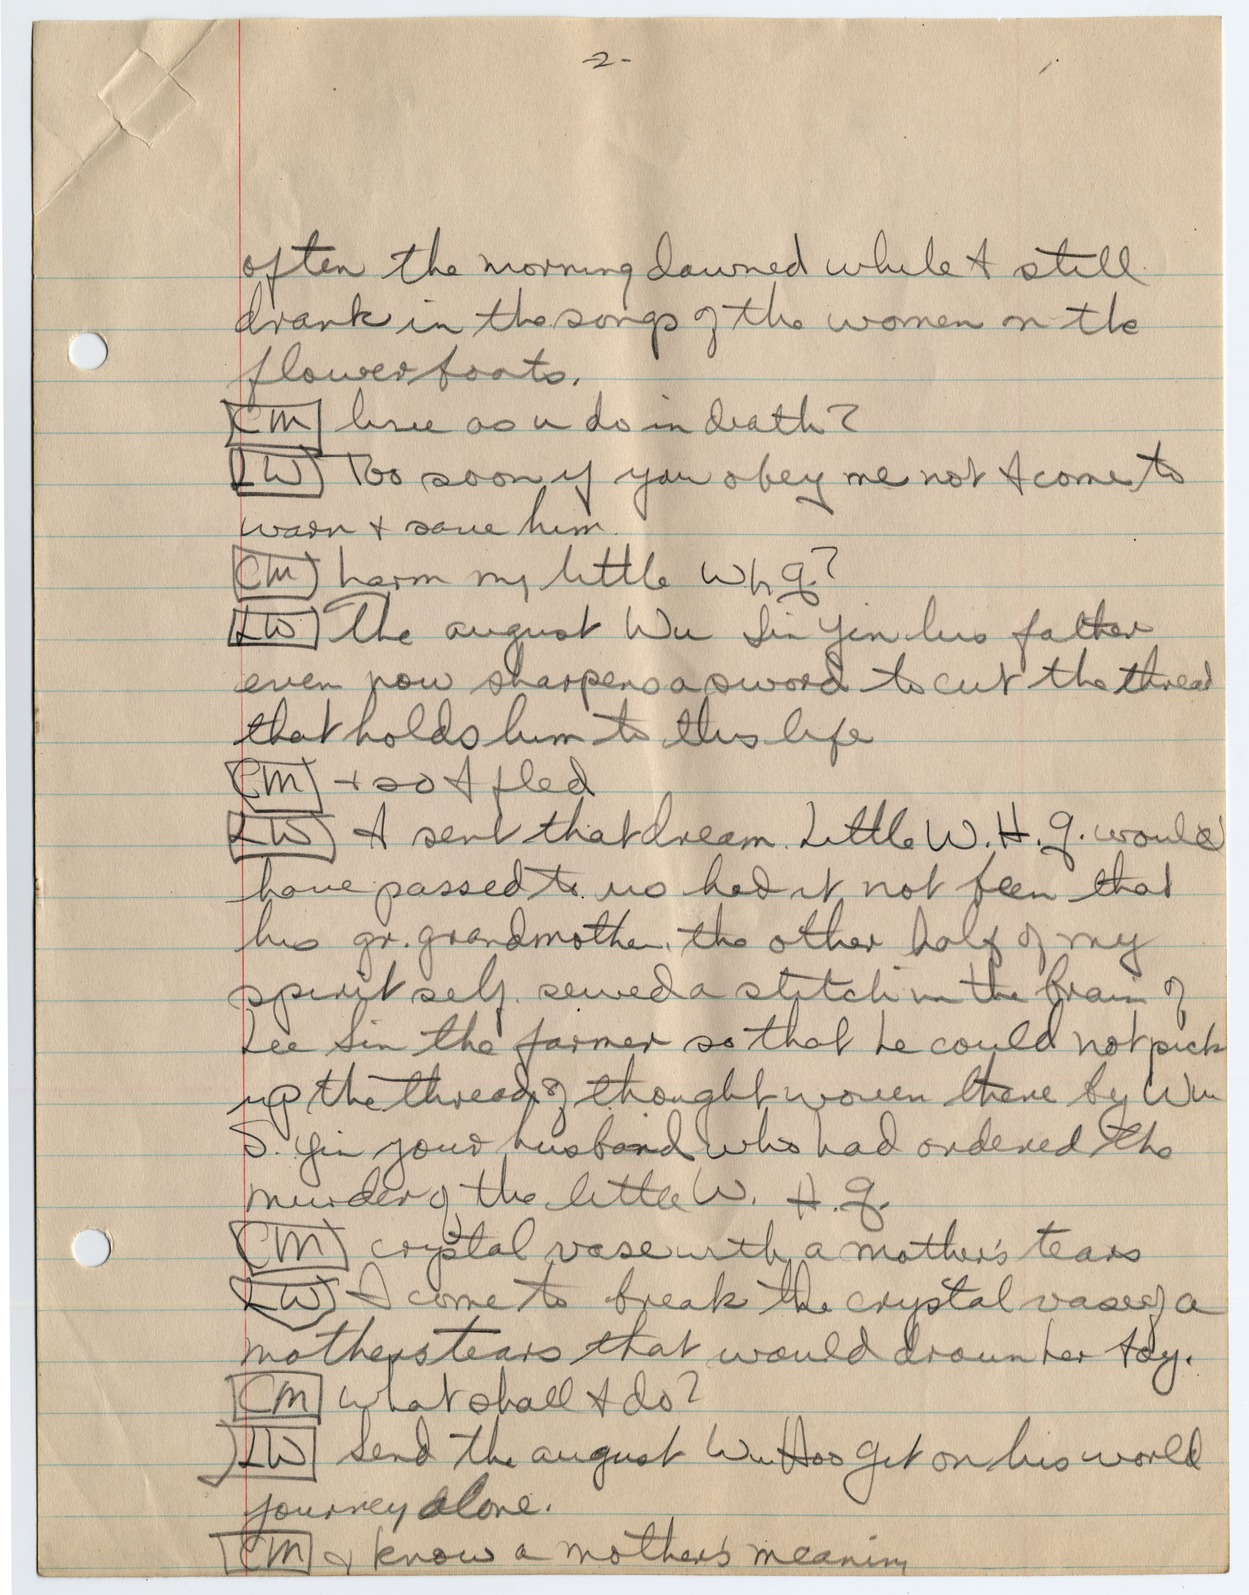 -2-
often the morning dawned while I still
drank in the songs of the women on the
flower boats.
CM live as u do in death?
LW Too soon if you obey me not I come to
warn + save him
CM harm my little W h g?
LW The august Wu Sin Yin his father
even now sharpens a sword to cut the thread
that holds him to this life
CM + so I fled
LW I sent that dream. Little W. H. G. would
have passed to us had it not been that
his gr. grandmother, the other half of my
spirit self. sewed a stitch in the brain of
Lee Sin the farmer so that he could not pick
up the thread of thought woven there by Wu
S. Yin your husband who had ordered the
murder of the little W. H. G.
CM crystal vase with a mother's tears
LW I come to break the crystal vase of a
mothers tears that would drown her
CM what shall I do?
LW Send the august Wu Hoo Git on his world
journey alone.
CM I know a mother's meaning